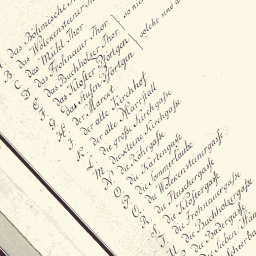 A das Böhmische
B das Wolckensteiner
C das Mühl Thor.
D das Frohnauer Thor.
E das Buchholzer Thor.
F das Kloster Pförtgen.
G das Stufen Pförtgen.
H der Marckt.
I der alte Kirchhof.
K der alte Marstall
L die große Kirchgaße
M die kleine Kirchgaße
N. die Röhrgaße
O. die Kartengaße
P. die Sommerlaube
Q. die Wolckensteinergaße
R. die Fleischergaße
S. die Klostergaße
T. die Frohnauergaße
U die Buchholzergaße
die Badergaße
die Sieben